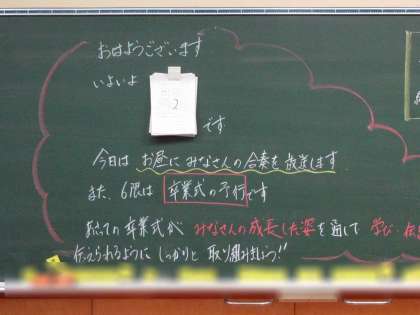 おはようございます
いよいよ
2
です
今日は お昼に みなさんの合奏を放送します
また、6限は 卒業式の予行です
の卒業式が みなさんの成長した姿を通して 学び・伝
伝えられるように しっかりと 取り組みましょう!!